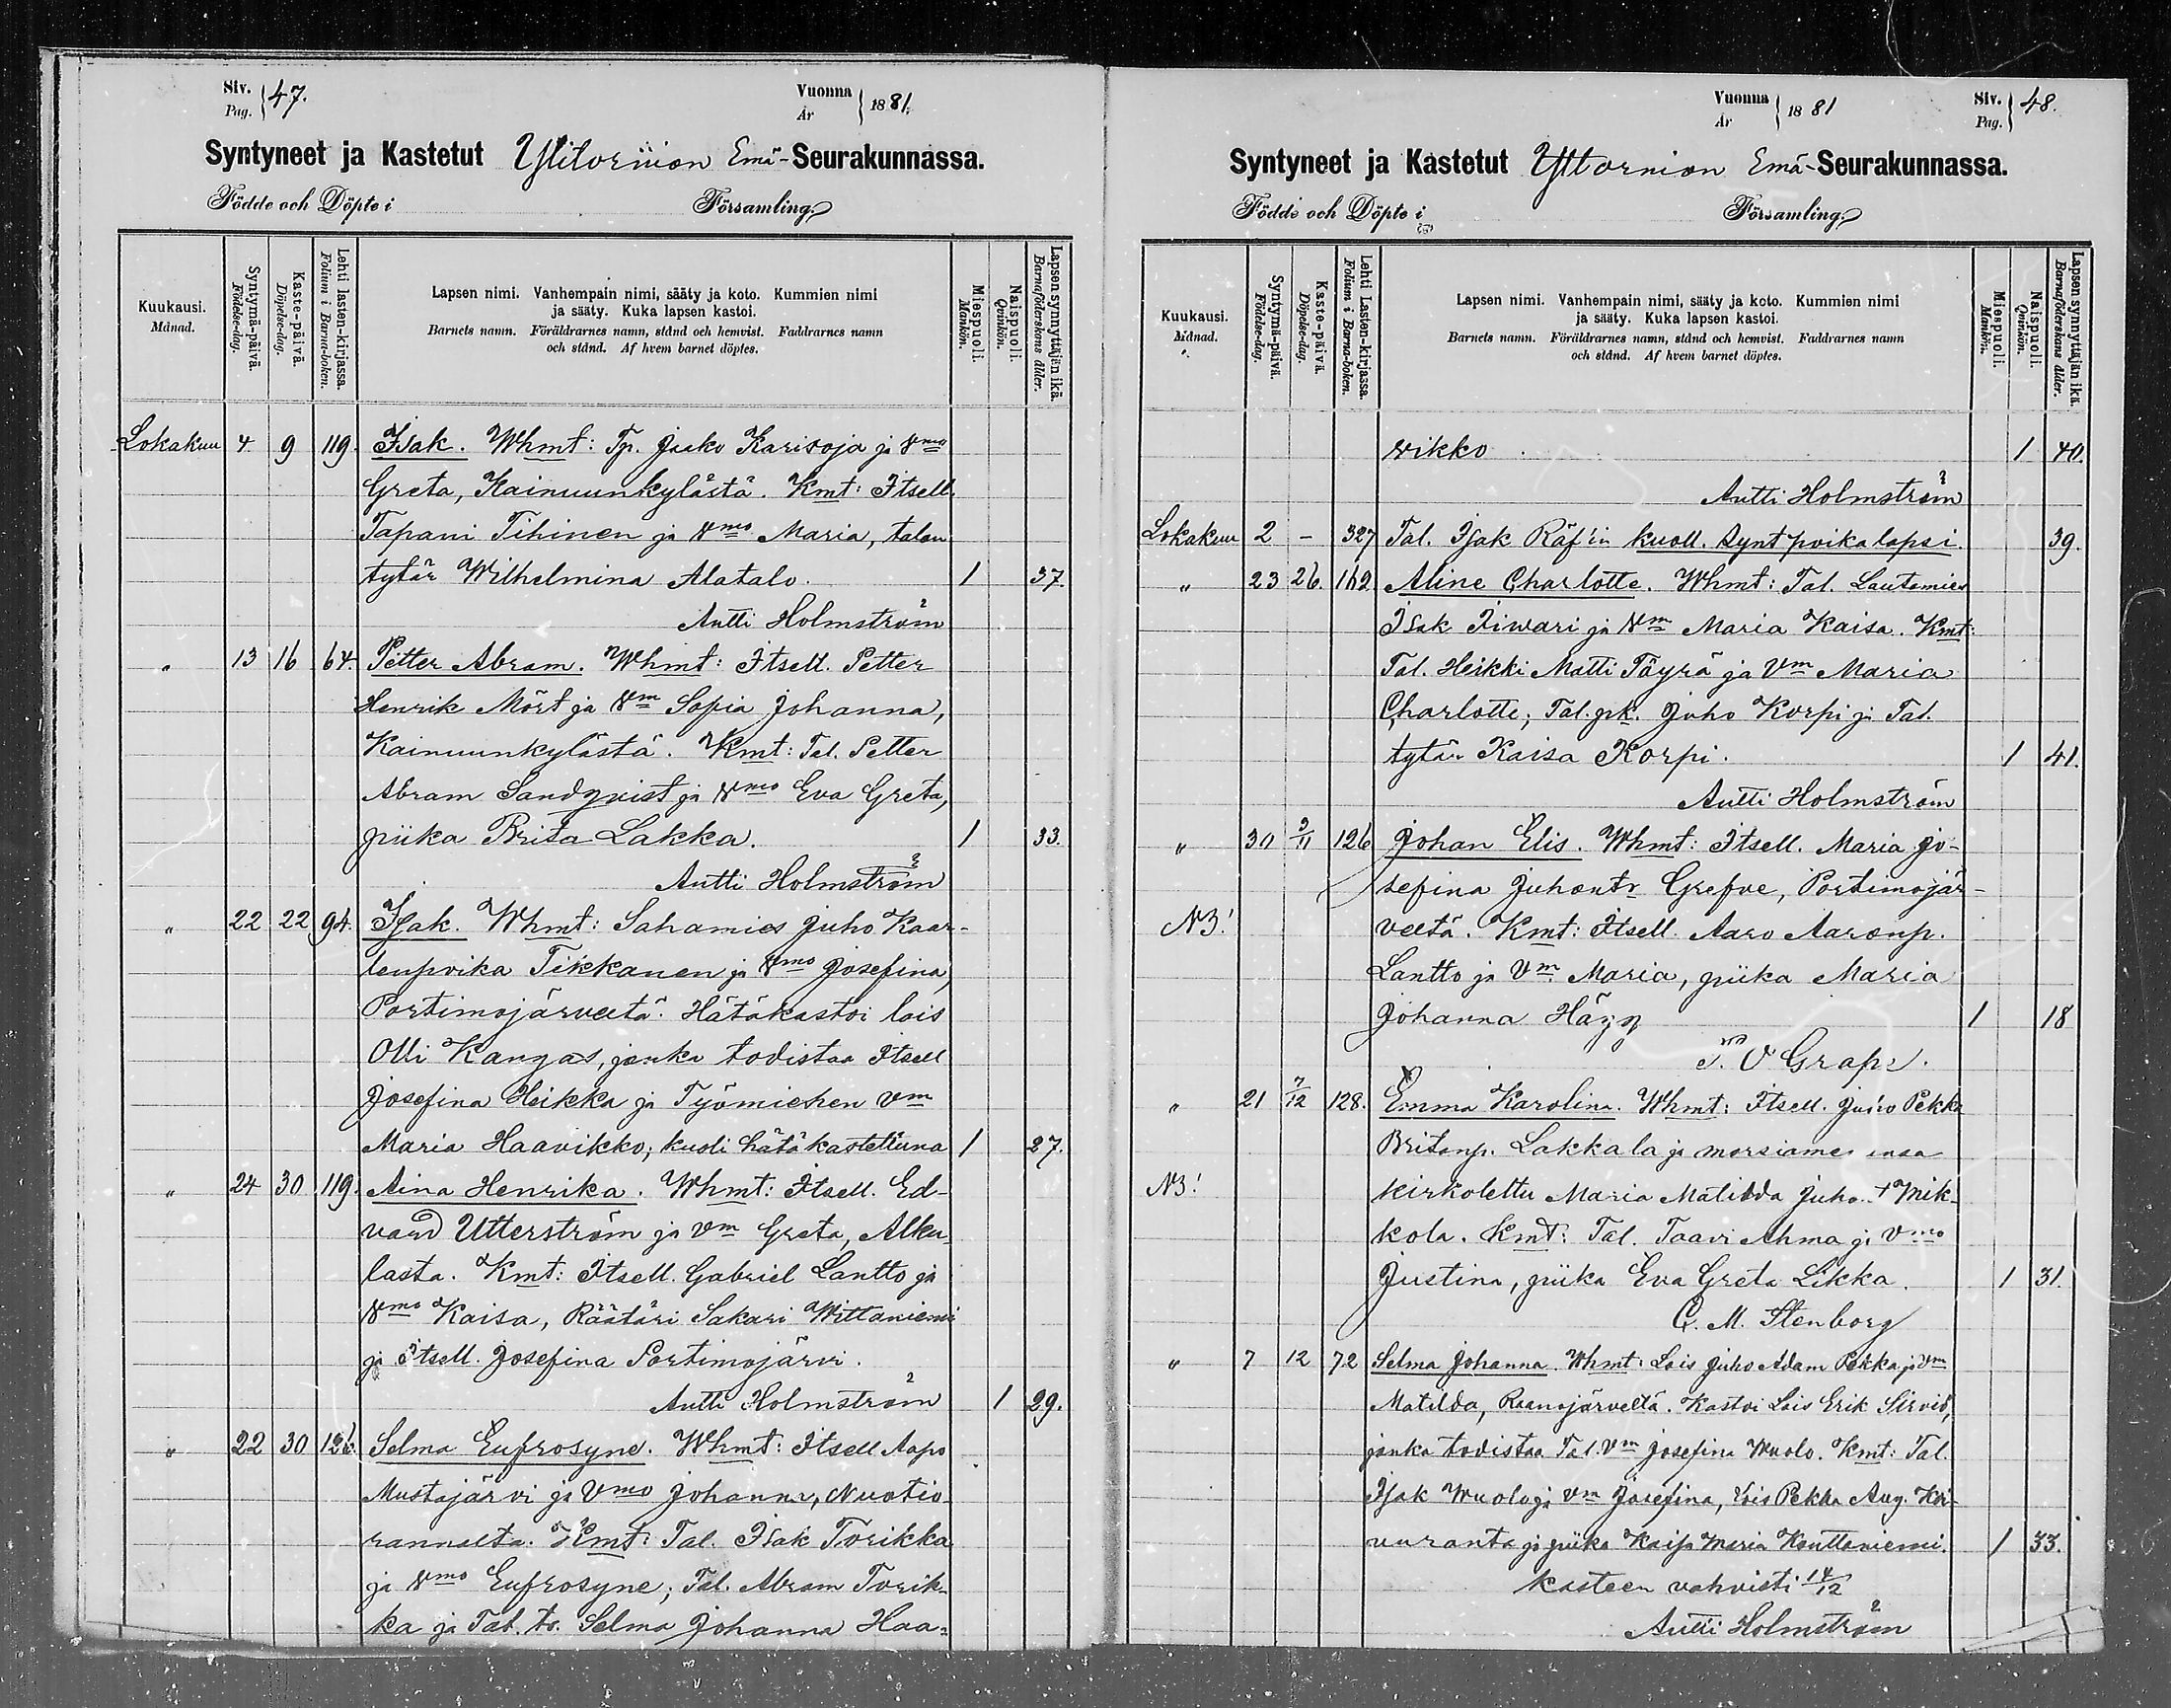 Siv. Pag. 47.
Vuonna År 1881.
Syntyneet ja Kastetut Ylitornion Emä-Seurakunnassa.
Födde och Döpte i Församling.
Kuukausi. Månad.
Syntymä-päivä. Födelse-dag.
Kaste-päivä. Döpelse-dag.
Lehti lasten-kirjassa. Folium i Barna-boken.
Lapsen nimi. Vanhempain nimi, sääty ja koto. Kummien nimi
ja sääty. Kuka lapsen kastoi.
Barnets namn. Föräldrarnes namn, stånd och hemvist. Faddrarnes namn
och stånd. Af hvem barnet döptes.
Miespuoli. Mankön.
Naispuoli. Qvinkön.
Lapsen synnyttäjän ikä. Barnaföderskans ålder.
Lokakuu 4. 9 119. Isak. Whmt: Tp. Jaako Karisoja ja Vmo
Greta, Kainuunkylästä. Kmt: Itsell.
Tapani Tihinen ja Vmo Maria, talon
tytär Wilhelmina Alatalo. 1 37.
Antti Holmström
" 13 16 64. Petter Abram. Whmt: Itsell. Petter
Henrik Mört ja Vm Sopia Johanna,
Kainuunkylästä. Kmt: Tal. Petter
Abram Sandqvist ja Vmo Eva Greta,
piika Brita Lakka. 1 33.
Antti Holmström
" 22 22 94. Isak. Whmt: Sahamies Juho Kaar-
lenpoika Tikkanen ja Vmo Josefina,
Portimojärveltä. Hätäkastoi lois
Olli Kangas, jonka todistaa Itsell
Josefina Heikka ja Työmiehen Vm
Maria Haavikko; kuoli hätäkastettuna 1 27.
" 24 30 119. Aina Henrika. Whmt: Itsell. Ed-
vard Utterström ja Vm Greta, Alku-
lasta. Kmt: Itsell. Gabriel Lantto ja
Vmo Kaisa, Räätäri Sakari Wittaniemi
ja Itsell. Josefina Portimojärvi.
Antti Holmström 1 29.
" 22 30 126. Selma Eufrosyne. Whmt: Itsell Aapo
Mustajärvi ja Vmo Johanna, Nuotio-
rannalta. Kmt: Tal. Isak Torikka
ja Vmo Eufrosyne; Tal. Abram Torik-
ka ja Tal. tr. Selma Johanna Haa-
Vuonna År 1881
Siv. Pag. 48.
Syntyneet ja Kastetut Ylitornion Emä-Seurakunnassa.
Födde och Döpte i Församling.
Kuukausi. Månad.
Syntymä-päivä. Födelse-dag.
Kaste-päivä. Döpelse-dag.
Lehti Lasten-kirjassa. Folium i Barna-boken.
Lapsen nimi. Vanhempain nimi, sääty ja koto. Kummien nimi
ja sääty. Kuka lapsen kastoi.
Barnets namn. Föräldrarnes namn, stånd och hemvist. Faddrarnes namn
och stånd. Af hvem barnet döptes.
Miespuoli. Mankön.
Naispuoli. Qvinkön.
Lapsen synnyttäjän ikä. Barnaföderskans ålder.
vikko 1 40.
Antti Holmström
Lokakuu 2 - 327 Tal. Isak Räf'in kuoll. synt poikalapsi. 39.
" 23 26. 162 Aline Charlotte. Whmt: Tal. Lautamies
Isak Tiiwari ja Vm Maria Kaisa. Kmt:
Tal. Heikki Matti Töyrä ja Vm Maria
Charlotte; Tal. pk. Juho Korpi ja Tal.
tytär Kaisa Korpi. 1 41.
Antti Holmström
" 30 3/11 126 Johan Elis. Whmt: Itsell. Maria Jo-
sefina Juhontr Grefve, Portimojär-
N3! veltä. Kmt: Itsell. Aaro Aaronp.
Lantto ja Vm Maria, piika Maria
Johanna Hägg 1 18
P. O Grape.
" 21 7/12 128. Emma Karolina. Whmt: Itsell. Juho Pekka
Britanp. Lakkala ja morsiamensa
N3! kirkolettu Maria Matilda Juho. t Mik-
kola. Kmt: Tal. Taavi Ahma ja Vmo
Justina, piika Eva Greta Likka. 1 31.
C. M. Stenborg
" 7 12 72 Selma Johanna. Whmt: Lois Juho Adam Pekka ja Vm
Matilda, Raanojärveltä. Kastoi Lois Erik Sirviö,
jonka todistaa Tal. Vm Josefina Wuolo. Kmt: Tal.
Isak Wuolo ja Vm Josefina, Lois Pekka Aug. Koi-
vuranta ja piika Kaisa Maria Kouttaniemi. 1 33.
kasteen vahvisti 14/12
Antti Holmström